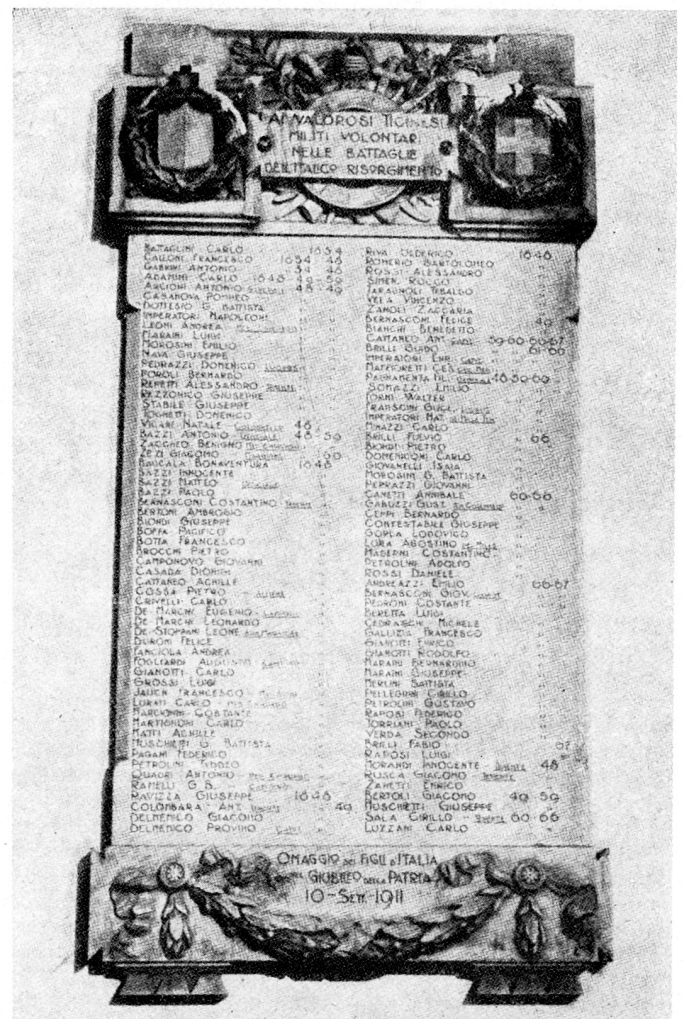 AI VALOROSI TICINESI
MILITI VOLONTARI
NELLE BATTAGLIE
DELL'ITALICO RISORGIMENTO
BATAGLINI CARLO 1834
CALLONI FRANCESCO 1834 48
GABRINI ANTONIO 34 48
ADAMINI CARLO 1848 49-59
ARCIONI ANTONIO GENERALE 48-49
CASABOVA POMPEO
DOTTESIO G. BATTISTA
IMPERATORI NAPOLEONE
LEONI ANDREA
MARAINI LUIGI
MOROSINI EMILIO
NAVA GIUSEPPE
PEDRAZZI DOMENICO
POROLI BERNARDO
REPETTI ALESSANDRO TENENTE
REZZONICO GIUSEPPE
STABILE GIUSEPPE
TOGNETTI DOMENICO
VICARI NATALE COLONNELLO 48
BAZZI ANTONIO UFFICIALE 48-59
ZACCHEO BENIGNO
ZEZI GIACOMO 60
BAGGALA BONAVENTURA 1848
BAZZI INNOCENTE
BAZZI MATTEO UFFICIALE
BAZZI PAOLO
BERNASCONI COSTANTINO TENENTE
BERTONI AMBROGIO
BIONDI GIUSEPPE
BOFFA PACIFICO
BOTTA FRANCESCO
BROCCHI PIETRO
CAMPONOVO GIOVANNI
CASADA DIONIGI
CATTANEO ACHILLE
COSSA PIETRO ALFIERE
CRIVELLI CARLO
DE-MARCHI EUGENIO
DE-MARCHI LEONARDO
DE-STOPPANI LEONE
DURONI FELICE
FANCIOLA ANDREA
FOGLIARDI AUGUSTO
GIANOTTI CARLO
GROSSI LUIGI
JAUCH FRANCESCO
LURATI CARLO
MARCIONNI COSTANTE
MARTIGNONI CARLO
MATTI ACHILLE
MOSCHETTI G. BATTISTA
PAGANI FEDERICO
PETROLINI TADDEO
QUADRI ANTONIO
RAMELLI G. B.
RAVIZZA GIUSEPPE 1848
COLOMBARA ANT. TENENTE 49
DELMENICO GIACOMO
DELMENICO PROVINO
RIVA OLDERICO 1848
ROMERIO BARTOLOMEO
ROSSI ALESSANDRO
SIMEN ROCCO
TARAGNOLI TEBALDO
VELA VINCENZO
ZANOLI ZACCARIA
BERNASCONI FELICE 49
BIANCHI BENEDETTO
CATTANEO ANT. 59-60-66-67
BRILLI GUIDO 61-66
IMPERATORI ENR.
MATTEORETTI CES.
PARRAMENTA FIL. 48-59-60
SOMAZZI EMILIO
TORNI WALTER
FRANSCINI GUGL.
IMPERATORI NAT.
MINAZZI CARLO
BRILLI FULVIO 66
BIONDI PIETRO
DOMENICONI CARLO
GIOVANELLI ISAIA
MOROSINI G. BATTISTA
PERRAZZI GIOVANNI
CANETTI ANNIBALE 60-66
GABUZZI GIUS.
CEPPI BERNARDO
CONTESTABILE GIUSEPPE
GORLA LODOVICO
LURA AGOSTINO
MADERNI COSTANTINO
PETROLINI ADOLFO
ROSSI DANIELE
ANDREAZZI EMILIO 66-67
BERNASCONI GIOV.
PEDRONI COSTANTE
BERETTA LUIGI
CEDRASCHI MICHELE
GALLIZIA FRANCESCO
GIANOTTI ENRICO
GIANOTTI RODOLFO
MARAINI BERNARDINO
MARAINI GIUSEPPE
MERLINI BATTISTA
PELLEGRINI CIRILLO
PETROLINI GUSTAVO
RAPOSI FEDERICO
TORRIANI PAOLO
VERDA SECONDO
BRILLI FABIO 67
RAPOSI LUIGI
MORANDI INNOCENTE TENENTE 48
RUSCA GIACOMO TENENTE
ZANETTI ENRICO
BERTOLI GIACOMO 49 59
MOSCHETTI GIUSEPPE
SALA CIRILLO TENENTE 60-66
LUZZANI CARLO
OMAGGIO DEI FIGLI D'ITALIA
NEL GIUBILEO DELLA PATRIA
10-SETT.-1911